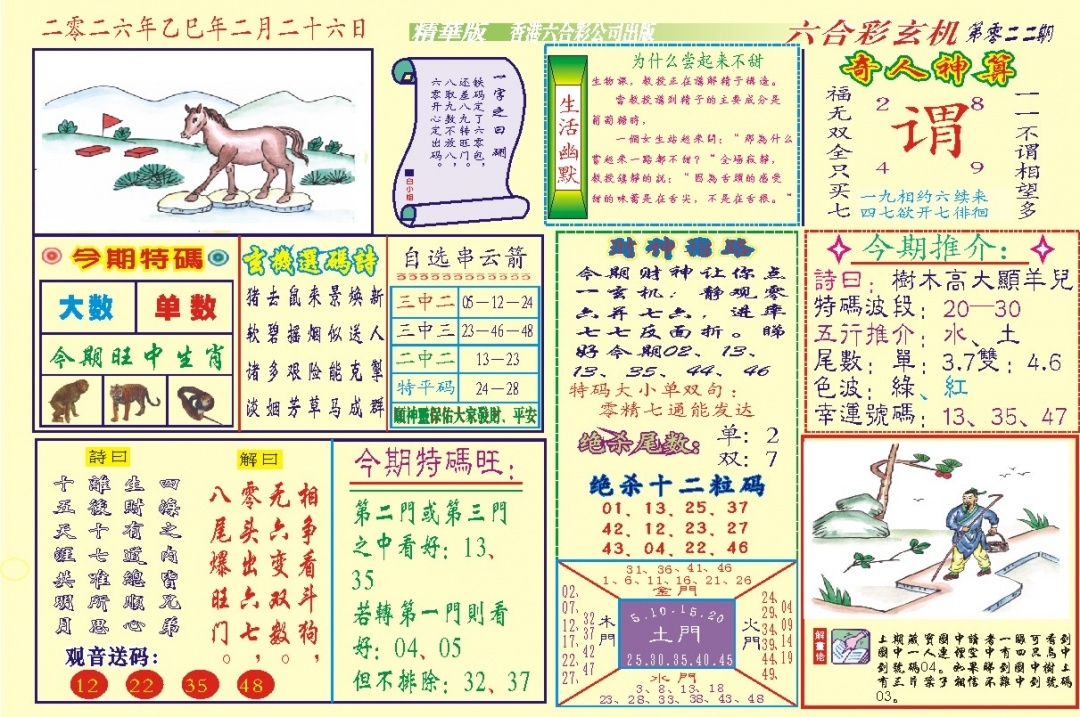 二零二六年乙巳年二月二十六日
精華版 香港六合彩公司出版
六合彩玄机 第零二二期
一字之曰:删
铁码定了六零包,
还差八九转旺八门。
八取九数不放八,
六零开心定出码。
白小姐
生活幽默
为什么尝起来不甜
生物課,教授正在講解精子構造。
當教授講到精子的主要成分是
葡萄糖時,
一個女生站起來問:"那為什么
嘗起來一點都不甜?"全場寂靜,
教授鎮静的説:"因為舌頭的感受
甜的味蕾是在舌尖,不是在舌根。"
奇人神算
福无双全只买七
2 8
谓
4 9
一一不谓相望多
一九相约六续来
四七欲开七徘徊
今期特碼
大数 单数
今期旺中生肖
玄機選碼詩
猪去鼠来景焕新
软碧摇烟似送人
诸多艰险能克掣
淡烟芳草马成群
自选串云箭
三中二 05—12—24
三中三 23—46—48
二中二 13—23
特平码 24—28
願神靈保佑大家發財、平安
財神指路
今期财神让你点
一玄机:静观零
六并七六,进率
七七反面折。睇
好今期02、13、
13、35、44、46
特码大小单双句:
零精七通能发达
绝杀尾数:
单:2
双:7
绝杀十二粒码
01、13、25、37
42、12、23、27
43、04、22、46
今期推介:
詩曰:樹木高大顯羊兒
特碼波段:20—30
五行推介:水、土
尾數:單:3.7雙:4.6
色波:綠、紅
幸運號碼:13、35、47
詩曰
四海之内皆兄弟
生財有道總順心
離後十七准所思
十五天涯共明月
解曰
相争看斗狗,
无六变双数,
零头出六七。
八尾爆旺门。
观音送码:
12 22 35 48
今期特碼旺:
第二門或第三門
之中看好:13、
35
若轉第一門則看
好:04、05
但不排除:32、37
31、36、41、46
1、6、11、16、21、26
金門
02、07、12、17、22、27、
32、37、42、47
木門
5.10.15.20
土門
25.30.35.40.45
火門
24、29、34、39、44、49
04、09、14、19
水門
3、8、13、18
23、28、33、38、43、48
解畫佬
上期藏寶圖中讀者一眼可看到
圖中一人連悝空中有四只鳥中
到號碼04。如果睇到圖中樹上
有三片葉子相信不難中到號碼
03。